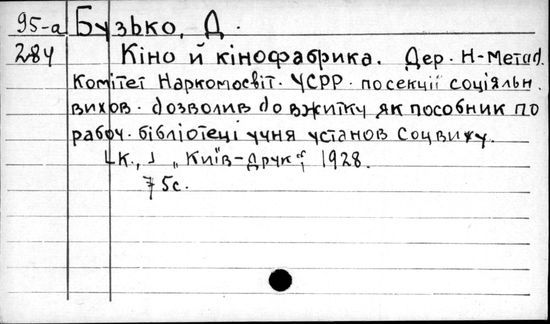 95-а Бузько, Д.
284 Кіно й кінофабрика. Дер. Н-Метод.
Комітет Наркомосвіт. УСРР. посекції соціяльн.
вихов. дозволив до вжитку як пособник по
рабоч. бібліотеці учня установ Соцвиху.
[К.,] „Київ-Друк", 1928.
75с.